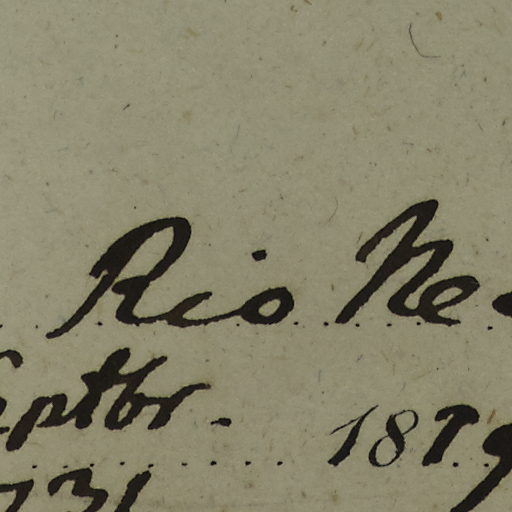 Rio Ne
ptbr. 189
731